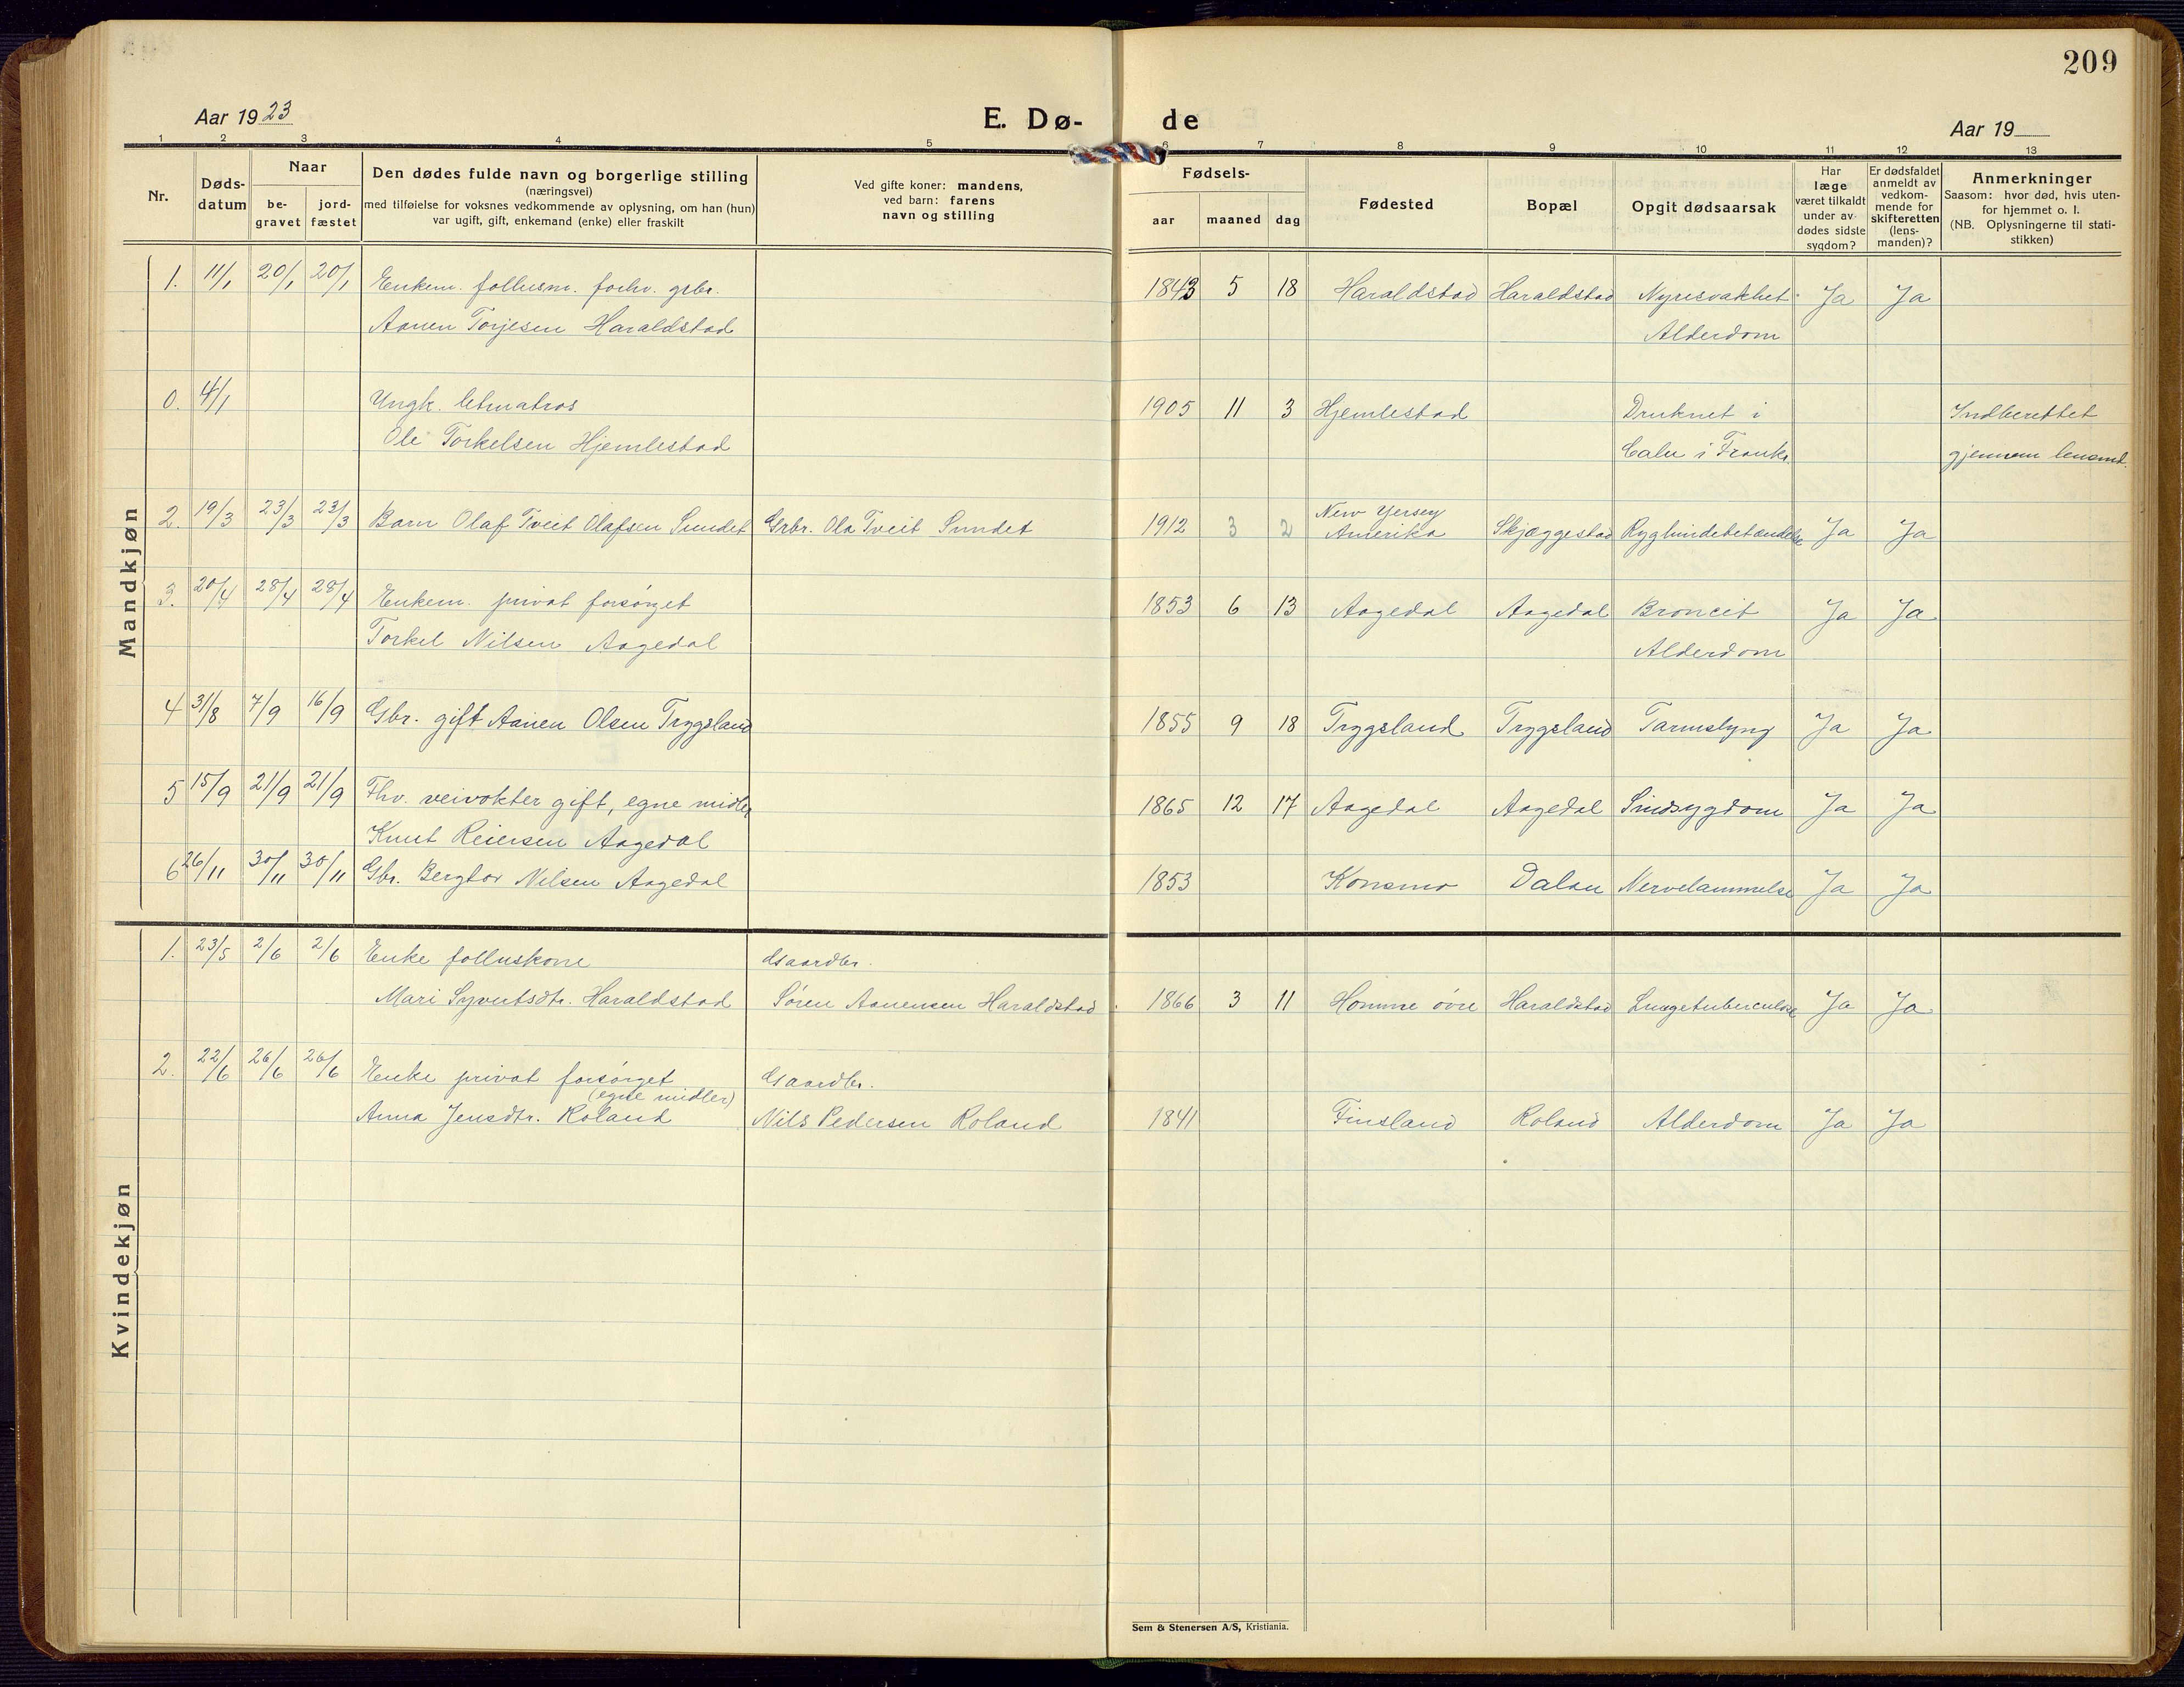 209
Aar 1923
E. Dø-
de
Aar 19
1 2 3 4 5 6 7 8 9 10 11 12 13
Nr.
Døds-
datum
Naar
be-
gravet
jord-
fæstet
Den dødes fulde navn og borgerlige stilling
(næringsvei)
med tilføielse for voksnes vedkommende av oplysning, om han (hun)
var ugift, gift, enkemand (enke) eller fraskilt
Ved gifte koner: mandens,
ved barn: farens
navn og stilling
Fødsels-
aar maaned dag
Fødested
Bopæl
Opgit dødsaarsak
Har
læge
været tilkaldt
under av-
dødes sidste
sygdom?
Er dødsfaldet
anmeldt av
vedkom-
mende for
skifteretten
(lens-
manden)?
Anmerkninger
Saasom: hvor død, hvis uten-
for hjemmet o. l.
(NB. Oplysningerne til stati-
stikken)
Mandkjøn
1. 11/1 20/1 20/1 Enkem. follusm. forhv. grbr. 1843 5 18 Haraldstad Haraldstad Nyresvakhet Ja Ja
Aanen Torjesen Haraldstad Alderdom
0. 4/1 Ungk. letmatros 1905 11 3 Hjemlestad Druknet i Indberettet
Ole Torkelsen Hjemlestad i Frankr. gjennem lensmd.
New Yersey
2. 19/3 23/3 23/3 Barn Olaf Tveit Olafsen Sundet Grbr. Ola Tveit Sundet 1912 3 2 Amerika Skjæggestad Ryghindebetændelse Ja Ja
3. 20/4 28/4 28/4 Enkem. privat forsørget 1853 6 13 Aagedal Aagedal Broncit Ja Ja
Torkel Nilsen Aagedal Alderdom
4 31/8 7/9 16/9 Gbr. gift Aanen Olsen Trygsland 1855 9 18 Trygsland Trygsland Tarmslyng Ja Ja
5 15/9 21/9 21/9 Fhv. veivokter gift, egne midler 1865 12 17 Aagedal Aagedal Sindsygdom Ja Ja
Knut Reiersen Aagedal
6 26/11 30/11 30/11 Gbr. Bergtor Nilsen Aagedal 1853 Konsmo Dalan Nervelammelse Ja Ja
Kvindekjøn
1. 23/5 2/6 2/6 Enke folluskone Gaardbr.
Mari Syvertsdtr. Haraldstad Søren Aanensen Haraldstad 1866 3 11 Homme øvre Haraldstad Lungetuberculose Ja Ja
2. 22/6 26/6 26/6 Enke privat forsørget Gaardbr.
(egne midler)
Anna Jensdtr. Roland Nils Pedersen Roland 1841 Finsland Roland Alderdom Ja Ja
Sem & Stenersen A/S, Kristiania.